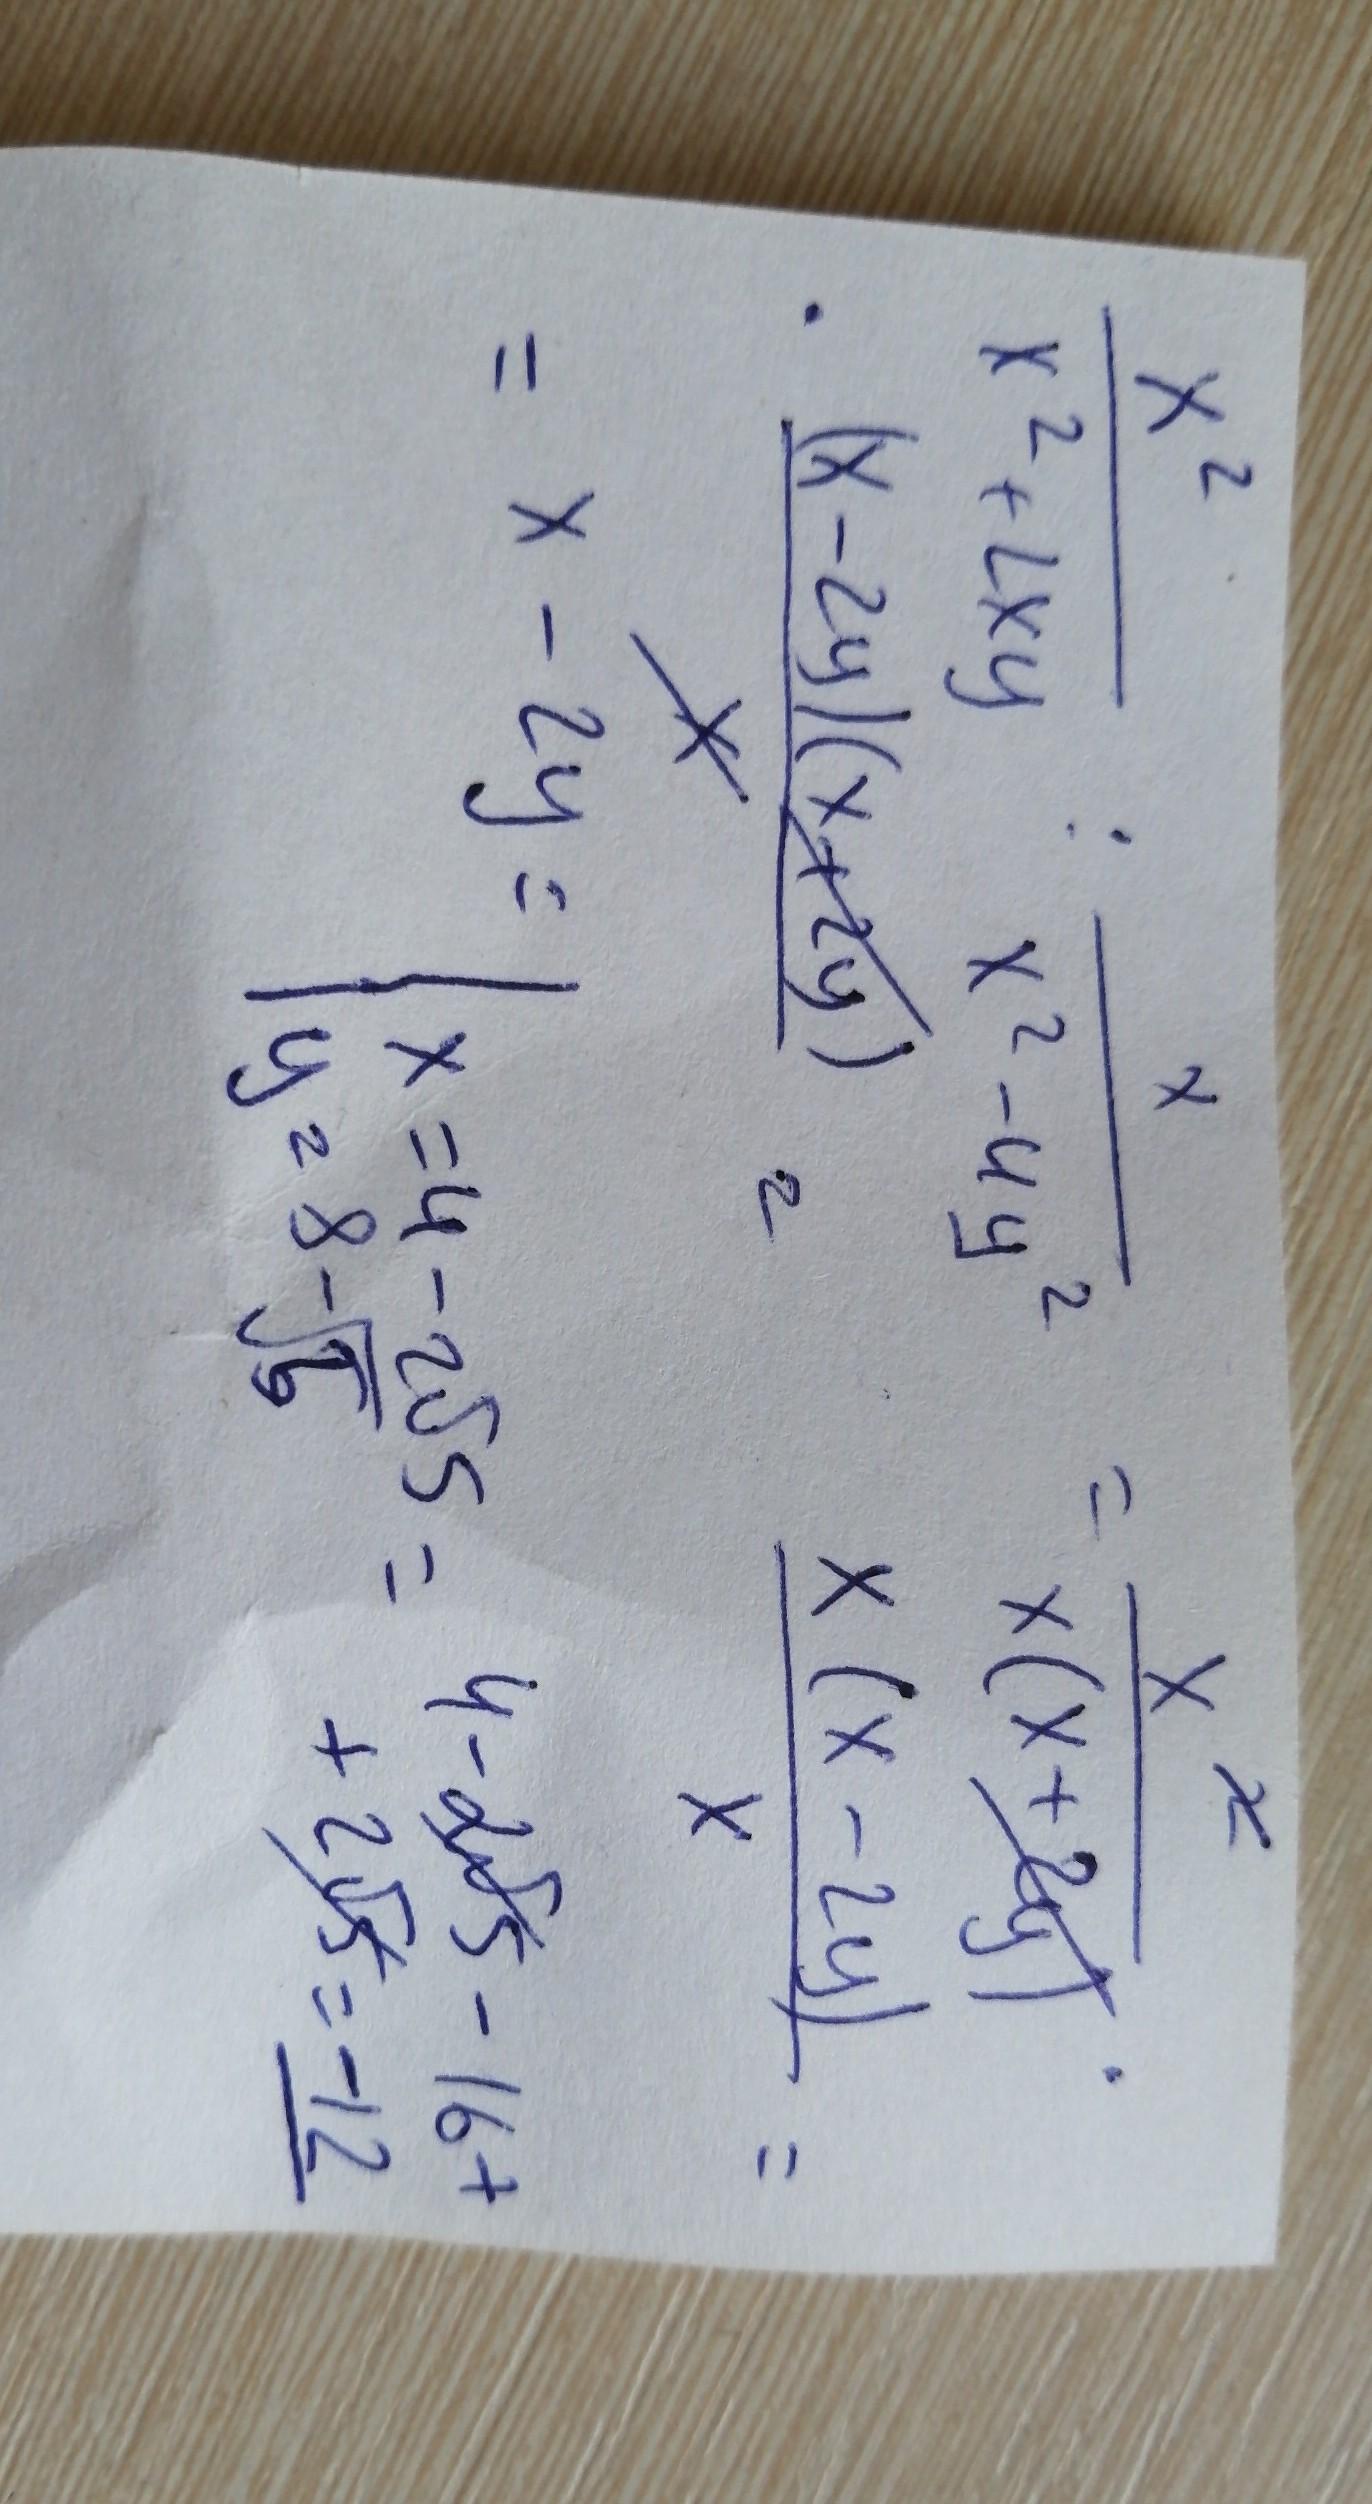 x² / (x² + 2xy) : x / (x² - 4y²) = x² / (x(x + 2y)) ·
· (x - 2y)(x + 2y) / x = x(x - 2y) / x =
= x - 2y = | x = 4 - 2√5 = 4 - 2√5 - 16 +
| y = 8 - √5 + 2√5 = -12